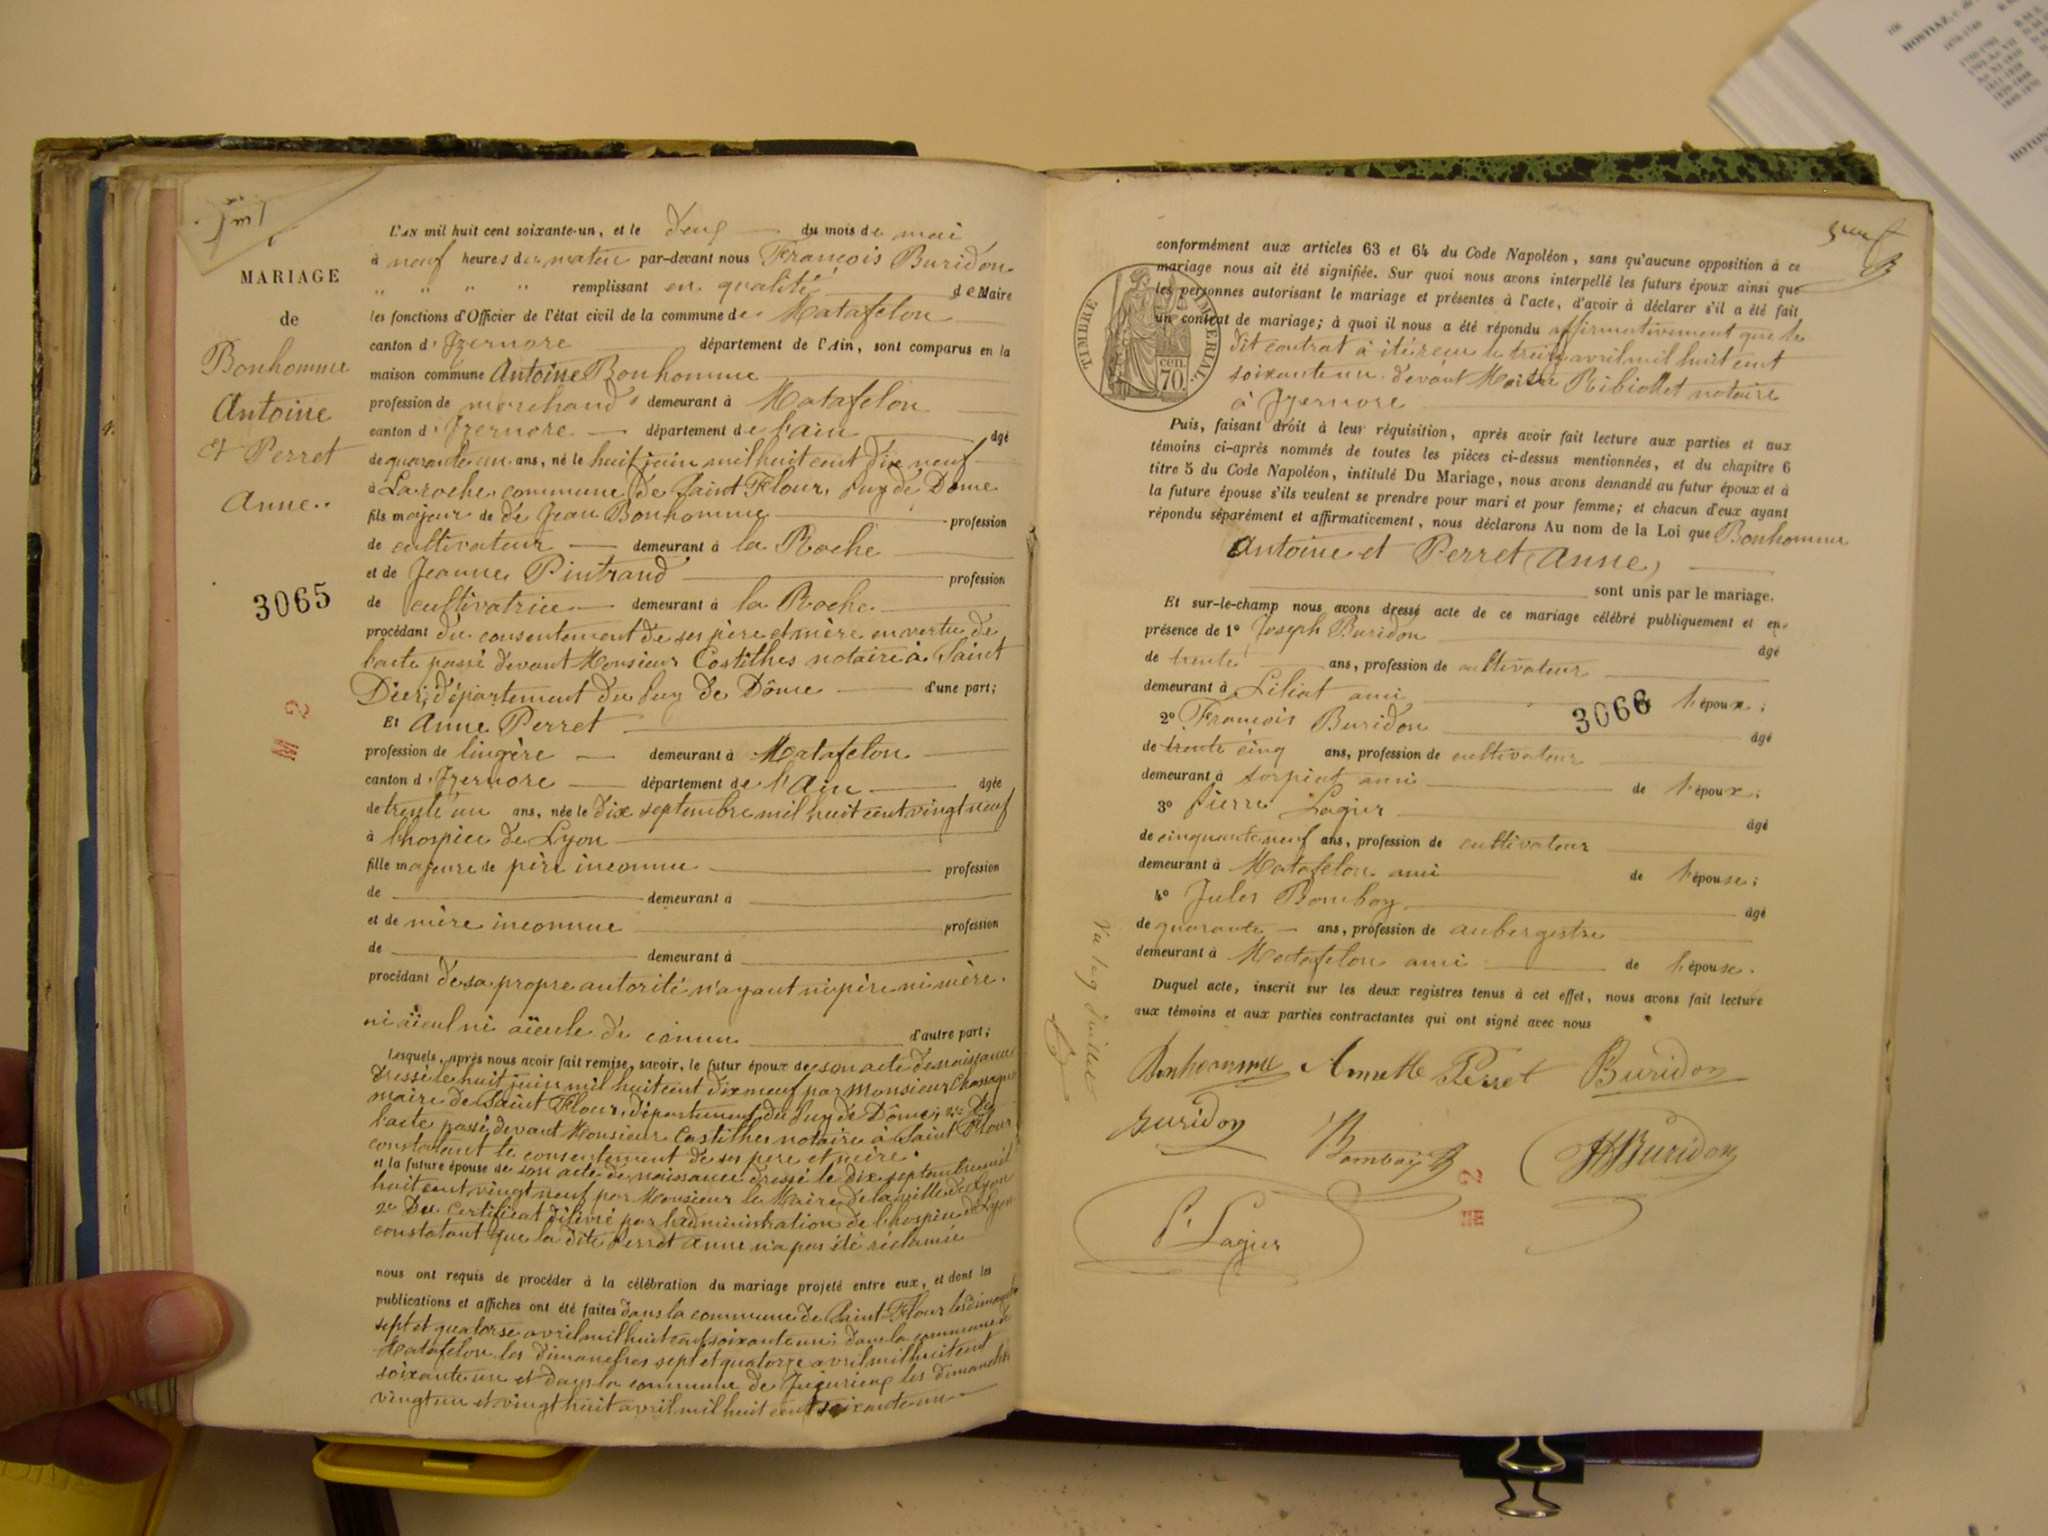 MARIAGE
de
Bonhomme
Antoine
et Perret
Anne.
3065
M 2
L'AN mil huit cent soixante-un, et le deux du mois de mai
à neuf heures du matin par-devant nous François Buridon
" " " " remplissant en qualité de Maire
les fonctions d'Officier de l'état civil de la commune de Matafelon
canton d'Izernore département de l'Ain, sont comparus en la
maison commune Antoine Bonhomme
profession de marchand demeurant à Matafelon
canton d'Izernore département de l'ain âgé
de quarante un ans, né le huit juin mil huit cent dix neuf
à Laroche, commune de Saint Flour, Puy de Dôme
fils majeur de de Jean Bonhomme profession
de cultivateur demeurant à la Roche
et de Jeanne Pintrand profession
de cultivatrice demeurant à la Roche
procédant du consentement de ses père et mère en vertu de
l'acte passé devant Monsieur Costilhes notaire à Saint
Dier, département du Puy de Dôme d'une part;
Et Anne Perret
profession de lingère demeurant à Matafelon
canton d'Izernore département de l'Ain âgée
de trente un ans, née le dix septembre mil huit cent vingt neuf
à l'hospice de Lyon
fille majeure de père inconnu profession
de demeurant à
et de mère inconnue profession
de demeurant à
procédant de sa propre autorité n'ayant ni père ni mère
ni aïeul ni aïeule de connu d'autre part;
Lesquels, après nous avoir fait remise, savoir, le futur époux de son acte de naissance
dressé le huit juin mil huit cent dix neuf par Monsieur Chassagne
maire de Saint Flour, département du Puy de Dôme, 2º De
l'acte passé devant Monsieur Costilhes notaire à Saint Flour
constatant le consentement de ses père et mère.
et la future épouse de son acte de naissance dressé le dix septembre mil
huit cent vingt neuf par Monsieur le Maire de la ville de Lyon
2º Du certificat délivré par l'administration de l'hospice de Lyon
constatant que la dite Perret Anne n'a pas été réclamée
nous ont requis de procéder à la célébration du mariage projeté entre eux, et dont les
publications et affiches ont été faites dans la commune de Saint Flour les dimanches
sept et quatorze avril mil huit cent soixante un; dans la commune de
Matafelon les dimanches sept et quatorze avril mil huit cent
soixante un et dans la commune de Jujurieux les dimanches
vingt un et vingt huit avril mil huit cent soixante un
TIMBRE IMPERIAL
70 cen
conformément aux articles 63 et 64 du Code Napoléon, sans qu'aucune opposition à ce
mariage nous ait été signifiée. Sur quoi nous avons interpellé les futurs époux ainsi que
les personnes autorisant le mariage et présentes à l'acte, d'avoir à déclarer s'il a été fait
un contrat de mariage; à quoi il nous a été répondu affirmativement que le
dit contrat à été reçu le treize avril mil huit cent
soixante un devant Maître Ribiollet notaire
à Izernore
Puis, faisant droit à leur réquisition, après avoir fait lecture aux parties et aux
témoins ci-après nommés de toutes les pièces ci-dessus mentionnées, et du chapitre 6
titre 5 du Code Napoléon, intitulé Du Mariage, nous avons demandé au futur époux et à
la future épouse s'ils veulent se prendre pour mari et pour femme; et chacun d'eux ayant
répondu séparément et affirmativement, nous déclarons Au nom de la Loi que Bonhomme
Antoine et Perret Anne,
sont unis par le mariage.
Et sur-le-champ nous avons dressé acte de ce mariage célébré publiquement et en
présence de 1º Joseph Buridon âgé
de trente ans, profession de cultivateur
demeurant à Siliat ami l'époux;
3066
2º François Buridon âgé
de trente cinq ans, profession de cultivateur
demeurant à Sorpiat ami de l'époux;
3º Pierre Lagier âgé
de cinquante neuf ans, profession de cultivateur
demeurant à Matafelon ami de l'épouse;
4º Jules Bomboy âgé
de quarante ans, profession de aubergiste
demeurant à Matafelon ami de l'épouse.
Duquel acte, inscrit sur les deux registres tenus à cet effet, nous avons fait lecture
aux témoins et aux parties contractantes qui ont signé avec nous
Bonhomme Annette Perret Buridon
Buridon Bomboy Buridon
P. Lagier
M 2
HOSTIAZ